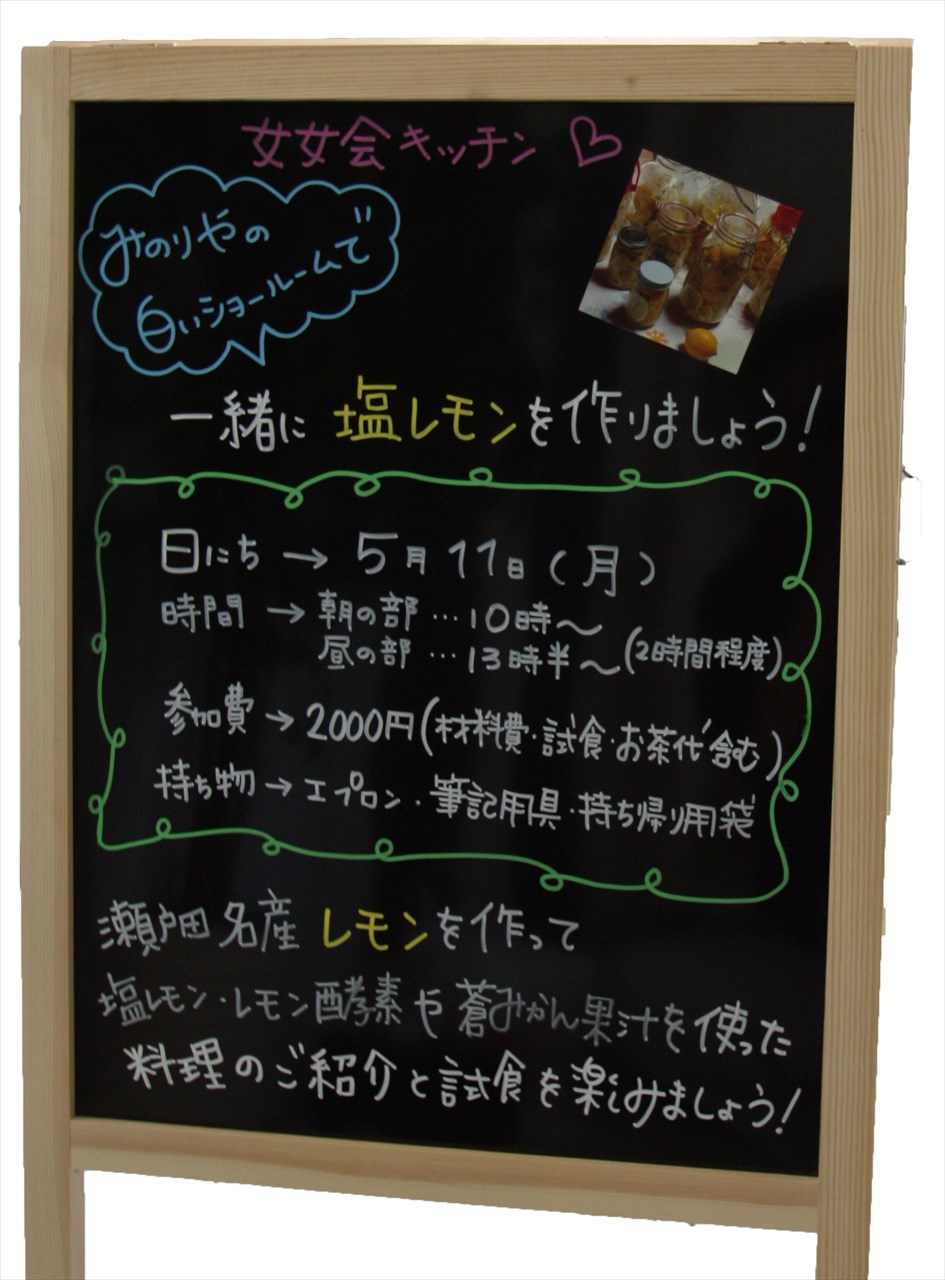 女女会キッチン ♡
みのりやの
白いショールームで
一緒に 塩レモンを作りましょう!
日にち → 5月11日(月)
時間 → 朝の部 … 10時〜
昼の部 … 13時半〜(2時間程度)
参加費 → 2000円(材料費・試食・お茶代含む)
持ち物 → エプロン・筆記用具・持ち帰り用袋
瀬戸田名産 レモンを作って
塩レモン・レモン酵素や蒼みかん果汁を使った
料理のご紹介と試食を楽しみましょう!